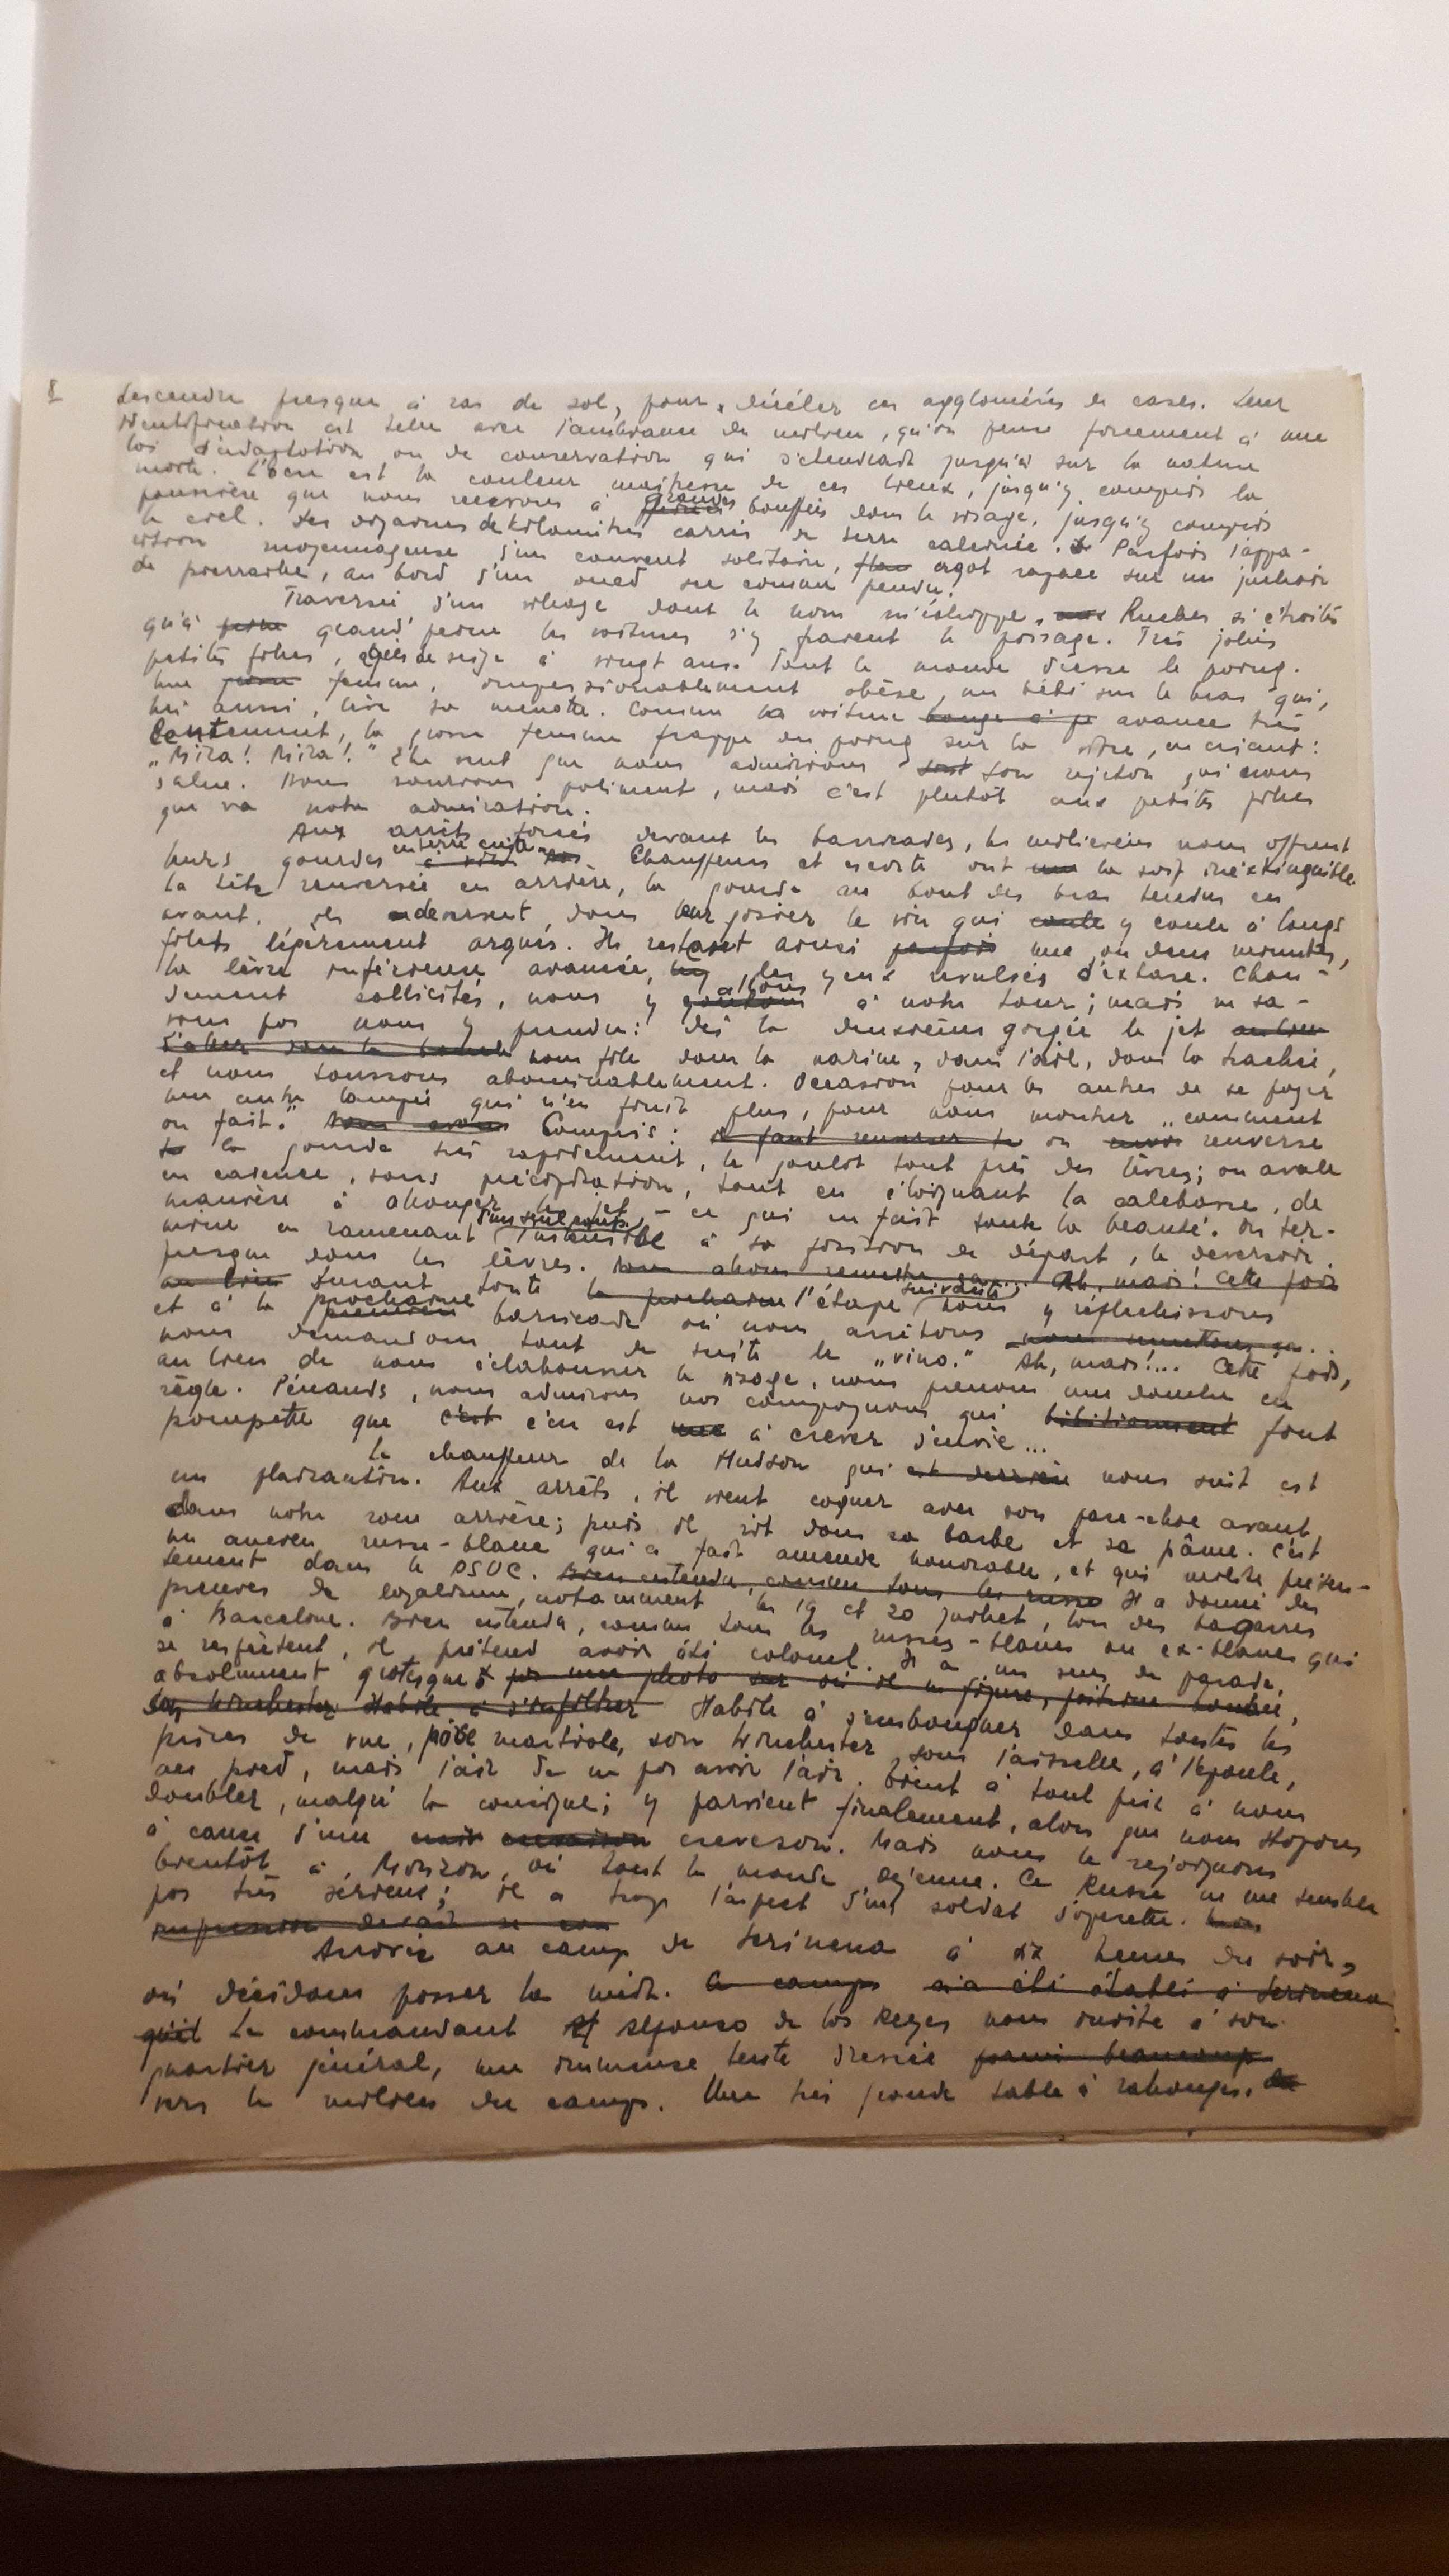 8
descendre presque à ras de sol, pour déceler ces agglomérés de cases. Leur
identification est telle avec l'ambiance du milieu, qu'on pense forcément à une
loi d'adaptation ou de conservation qui s'étendrait jusqu'à sur la nature
morte. L'ocre est la couleur maîtresse de ces lieux, jusqu'y compris la
poussière que nous recevons à grandes bouffées dans le visage, jusqu'y compris
le ciel. Des dizaines de kilomètres carrés de terre calcinée. Parfois l'appa-
rition moyennageuse d'un couvent solitaire, ergot rapace sur un juchoir
de pierraille, au bord d'un oued sec comme pendu.
Traversée d'un village dont le nom m'échappe. Ruelles si étroites
qu'à grand'peine les voitures s'y fraient le passage. Très jolies
petites filles, âgées de seize à vingt ans. Tout le monde dresse le poing.
Une femme, impressionnablement obèse, un bébé sur le bras qui,
lui aussi, lève sa menotte. Comme la voiture bouge à pe avance très
lentement, la grosse femme frappe du poing sur la vitre, en criant :
„Mira! Mira!" Elle veut que nous admirions son rejeton qui nous
salue. Nous sourions poliment, mais c'est plutôt aux petites filles
que va notre admiration.
Aux arrêts forcés devant les barricades, les miliciens nous offrent
leurs gourdes en terre cuite. Chauffeurs et escorte ont la soif inextinguible
la tête renversée en arrière, la gourde au bout des bras tendus en
avant, ils déversent dans leur gosier le vin qui coule y coule à longs
filets légèrement arqués. Ils restent ainsi parfois une ou deux minutes,
la lèvre inférieure avancée, les yeux révulsés d'extase. Chau-
dement sollicités, nous y allons goûtons à notre tour; mais ne sa-
vons pas nous y prendre: dès la deuxième gorgée le jet au lieu
d'aller dans la bouche nous file dans la narine, dans l'œil, dans la trachée,
et nous toussons abominablement. Occasion pour les autres de se payer
une autre lampée qui n'en finit plus, pour nous montrer „comment
on fait." Nous avons Compris: il faut renverser la on renverse
la gourde très rapidement, le goulot tout près des lèvres; on avale
en cadence, sans précipitation, tout en éloignant la calebasse, de
manière à allonger le jet – ce qui en fait toute la beauté. On ter-
mine en ramenant d'un seul coup, l'ustensile à sa position de départ, le déversoir
presque dans les lèvres. Ah, mais! Cette fois
au lieu Durant toute la prochaine l'étape suivante, nous y réfléchissons
et à la prochaine première barricade où nous arrêtons nous remettons ça...
nous demandons tout de suite le „vino." Ah, mais!... Cette fois,
au lieu de nous éclabousser le visage, nous prenons une douche en
règle. Pénauds, nous admirons nos compagnons qui font
pompette que c'est c'en est à crever d'envie...
Le chauffeur de la Hudson qui est derrière nous suit est
un plaisantin. Aux arrêts, il vient cogner avec son pare-choc avant,
dans notre roue arrière; puis il rit dans sa barbe et se pâme. C'est
un ancien russe-blanc qui a fait amende honorable, et qui milite présen-
tement dans le PSUC. Bien entendu, comme tous les russes Il a donné des
preuves de loyalisme, notamment les 19 et 20 juillet, lors des bagarres
à Barcelone. Bien entendu, comme tous les russes-blancs ou ex-blancs qui
se respectent, il prétend avoir été colonel. Il a un sens de parade,
absolument grotesque pas une photo sur où il ne figure, poitrine bombée,
son winchester Habile à s'infiltrer Habile à s'embouquer dans toutes les
prises de vue, pose martiale, son winchester sous l'aisselle, à l'épaule,
au pied, mais l'air de ne pas avoir l'air. Tient à tout prix à nous
doubler, malgré la consigne; y parvient finalement, alors que nous stopons
à cause d'une crevaison crevaison. Mais nous le rejoignons
bientôt à Monzon, où tout le monde déjeune. Ce Russe ne me semble
pas très sérieux; il a trop l'aspect d'un soldat d'opérette.
impression devait se con
Arrivée au camp de Serinena à dix heures du soir,
où décidons passer la nuit. Ce camp a été établi à Serinena
qu'il Le commandant Alfonso de los Reyes nous invite à son
quartier général, une immense tente dressée parmi beaucoup
vers le milieu du camp. Une très grande table à rallonges.